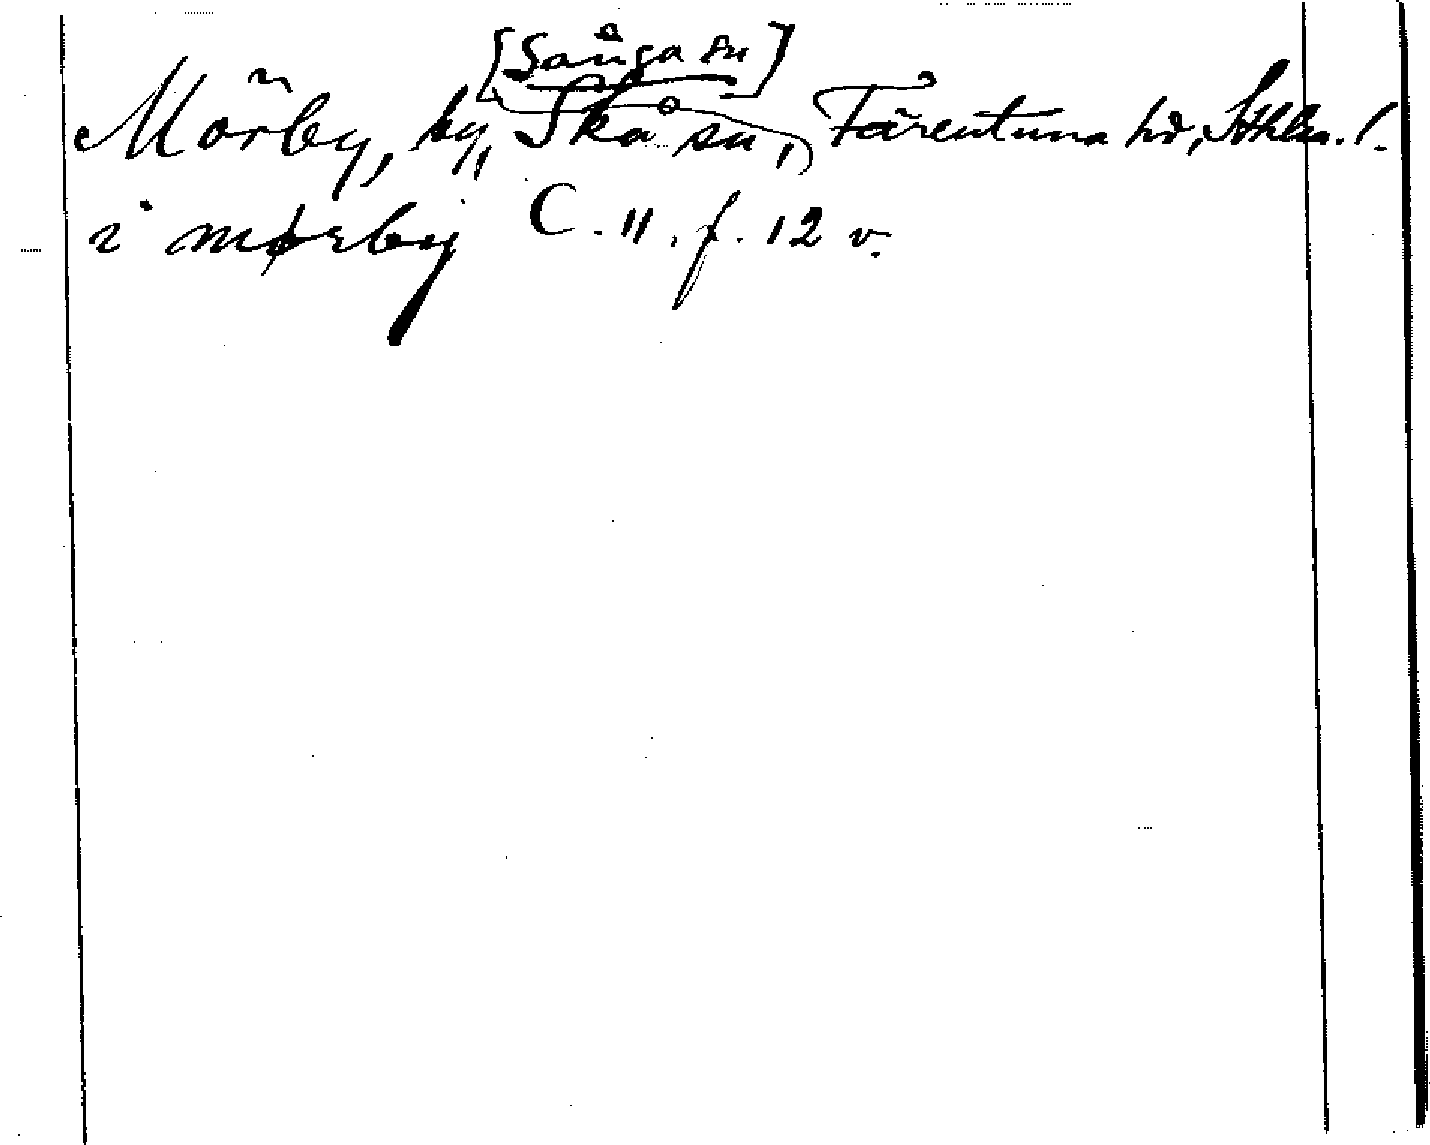 [Sånga sn]
Mörby, by, Skå sn, Färentuna hd, Sthlm. l.
i mørby C. 11. f. 12 v.